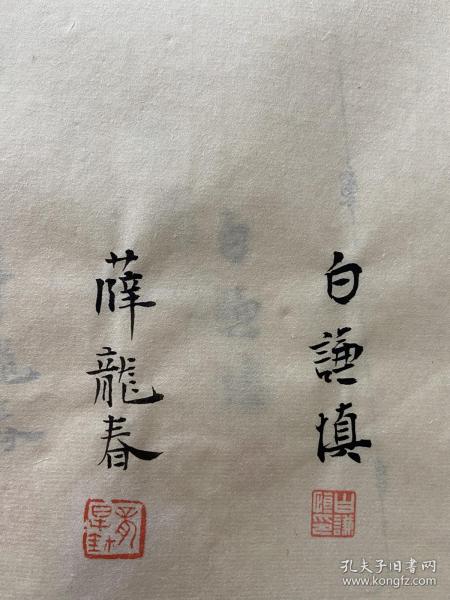 白謙慎
薛龍春
孔夫子旧书网
www.kongfz.com